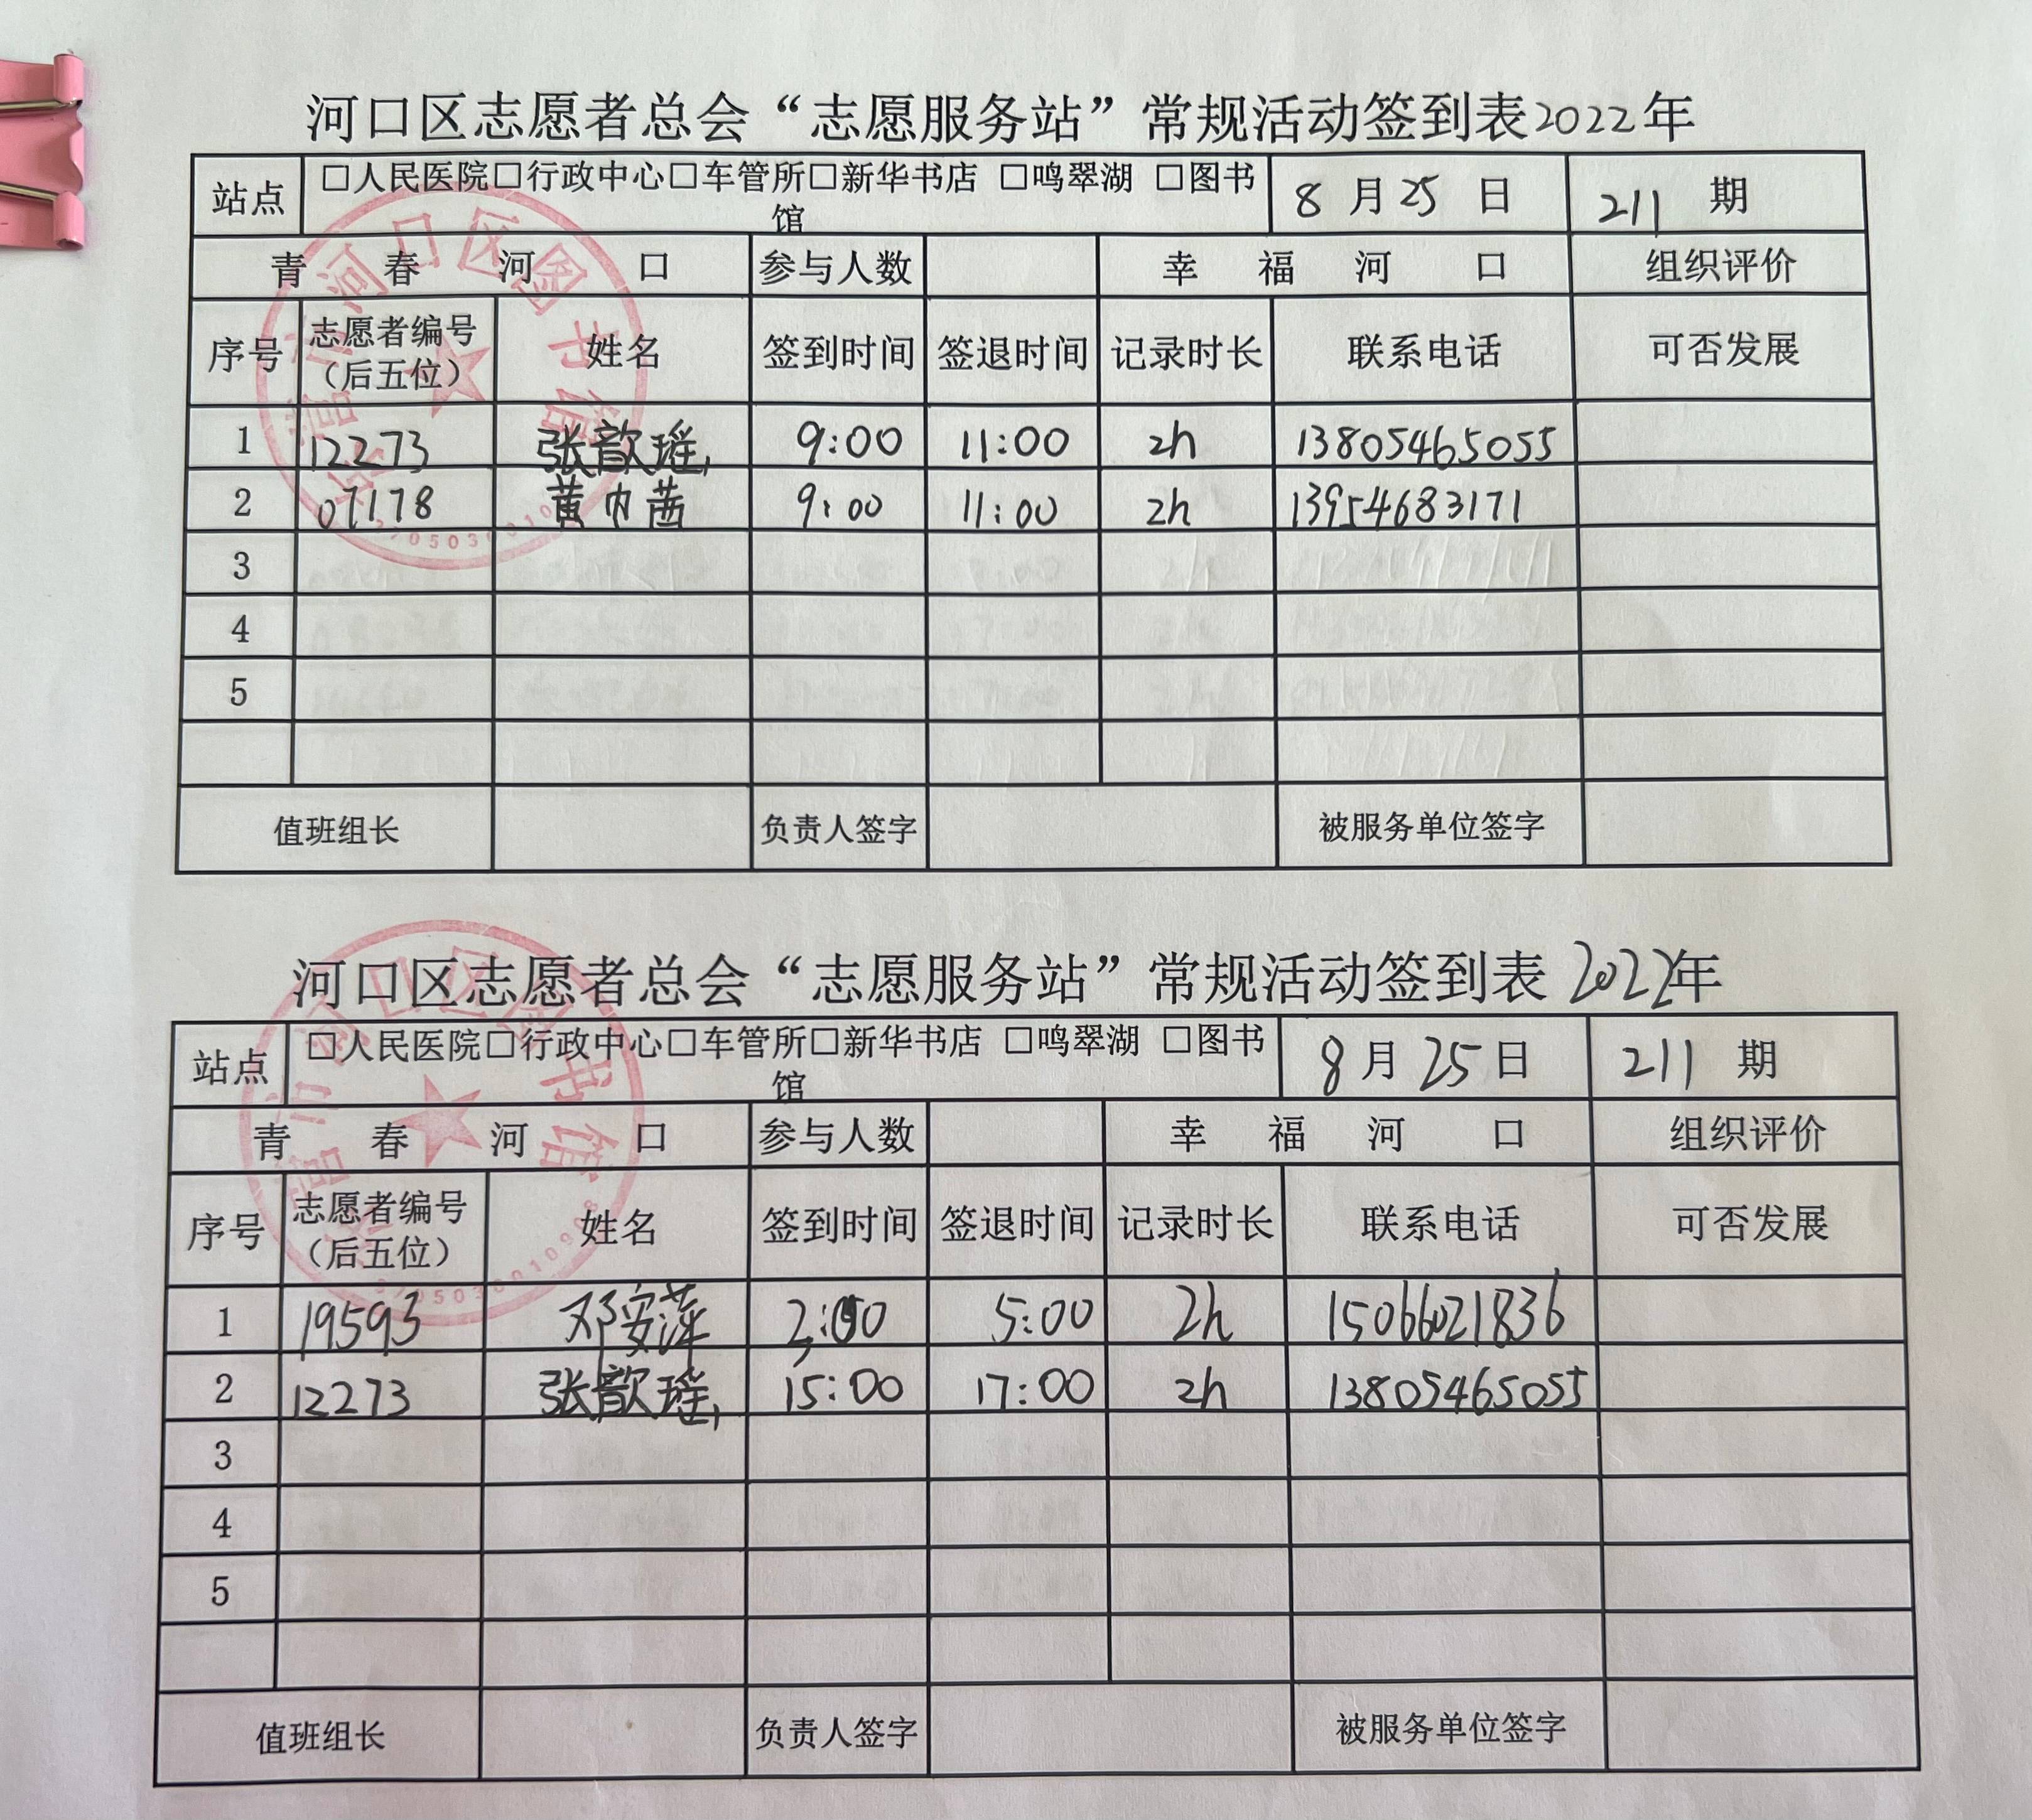 河口区志愿者总会“志愿服务站”常规活动签到表2022年
站点 □人民医院□行政中心□车管所□新华书店 □鸣翠湖 □图书馆 8月25日 211期
青春河口 参与人数 幸福河口 组织评价
序号 志愿者编号（后五位） 姓名 签到时间 签退时间 记录时长 联系电话 可否发展
1 12273 张歆瑶 9:00 11:00 2h 13805465055
2 07178 黄巾茜 9:00 11:00 2h 13954683171
3
4
5
值班组长 负责人签字 被服务单位签字
河口区志愿者总会“志愿服务站”常规活动签到表2022年
站点 □人民医院□行政中心□车管所□新华书店 □鸣翠湖 □图书馆 8月25日 211期
青春河口 参与人数 幸福河口 组织评价
序号 志愿者编号（后五位） 姓名 签到时间 签退时间 记录时长 联系电话 可否发展
1 19593 邓安萍 5:00 2h 15066021836
2 12273 张歆瑶 15:00 17:00 2h 13805465055
3
4
5
值班组长 负责人签字 被服务单位签字